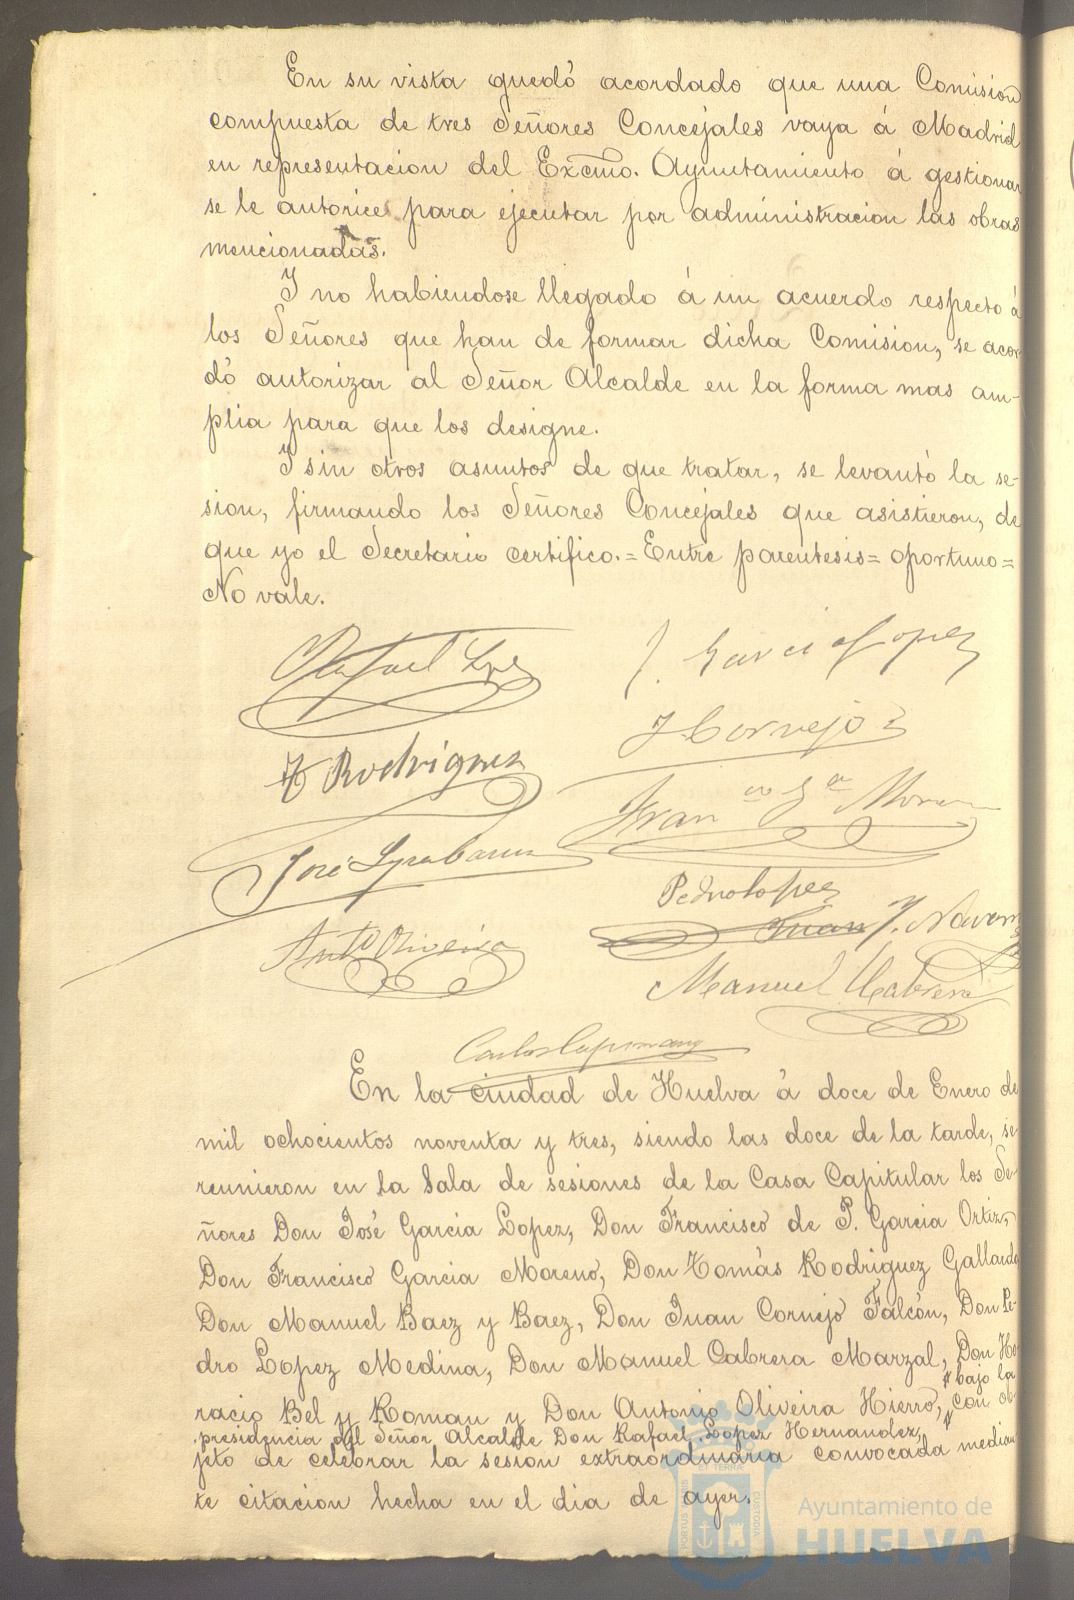 En su vista quedó acordado que una Comision
compuesta de tres Señores Concejales vaya á Madrid
en representacion del Excmo. Ayuntamiento á gestionar
se le autorice para ejecutar por administracion las obras
mencionadas.
Y no habiendose llegado á un acuerdo respecto á
los Señores que han de formar dicha Comision, se acor-
dó autorizar al Señor Alcalde en la forma mas am-
plia para que los designe.
Y sin otros asuntos de que tratar, se levantó la se-
sion, firmando los Señores Concejales que asistieron, de
que yo el Secretario certifico.=Entre parentesis=oportuno=
No vale.
Rafael Lpz
J. Garcia Lopez
J Cornejo
T Rodriguez
Fran co Ga Moreno
José
Pedro Lopez
Juan J. Navarro
Anto Oliveira
Manuel Cabrera
Carlos
En la ciudad de Huelva á doce de Enero de
mil ochocientos noventa y tres, siendo las doce de la tarde, se
reunieron en la Sala de sesiones de la Casa Capitular los Se-
ñores Don José Garcia Lopez, Don Francisco de P. Garcia Ortiz,
Don Francisco Garcia Moreno, Don Tomás Rodriguez Gallardo
Don Manuel Baez y Baez, Don Juan Cornejo Falcón, Don Pe-
dro Lopez Medina, Don Manuel Cabrera Marzal, Don Ho-
racio Bel y Roman y Don Antonio Oliveira Hierro, con ob-
bajo la
presidencia del Señor Alcalde Don Rafael Lopez Hernandez,
jeto de celebrar la sesion extraordinaria convocada median
te citacion hecha en el dia de ayer.
Ayuntamiento de
HUELVA